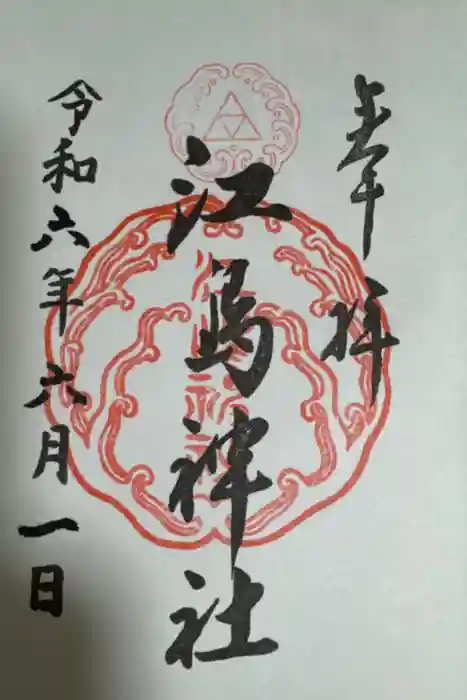 奉拝
江島神社
令和六年六月一日